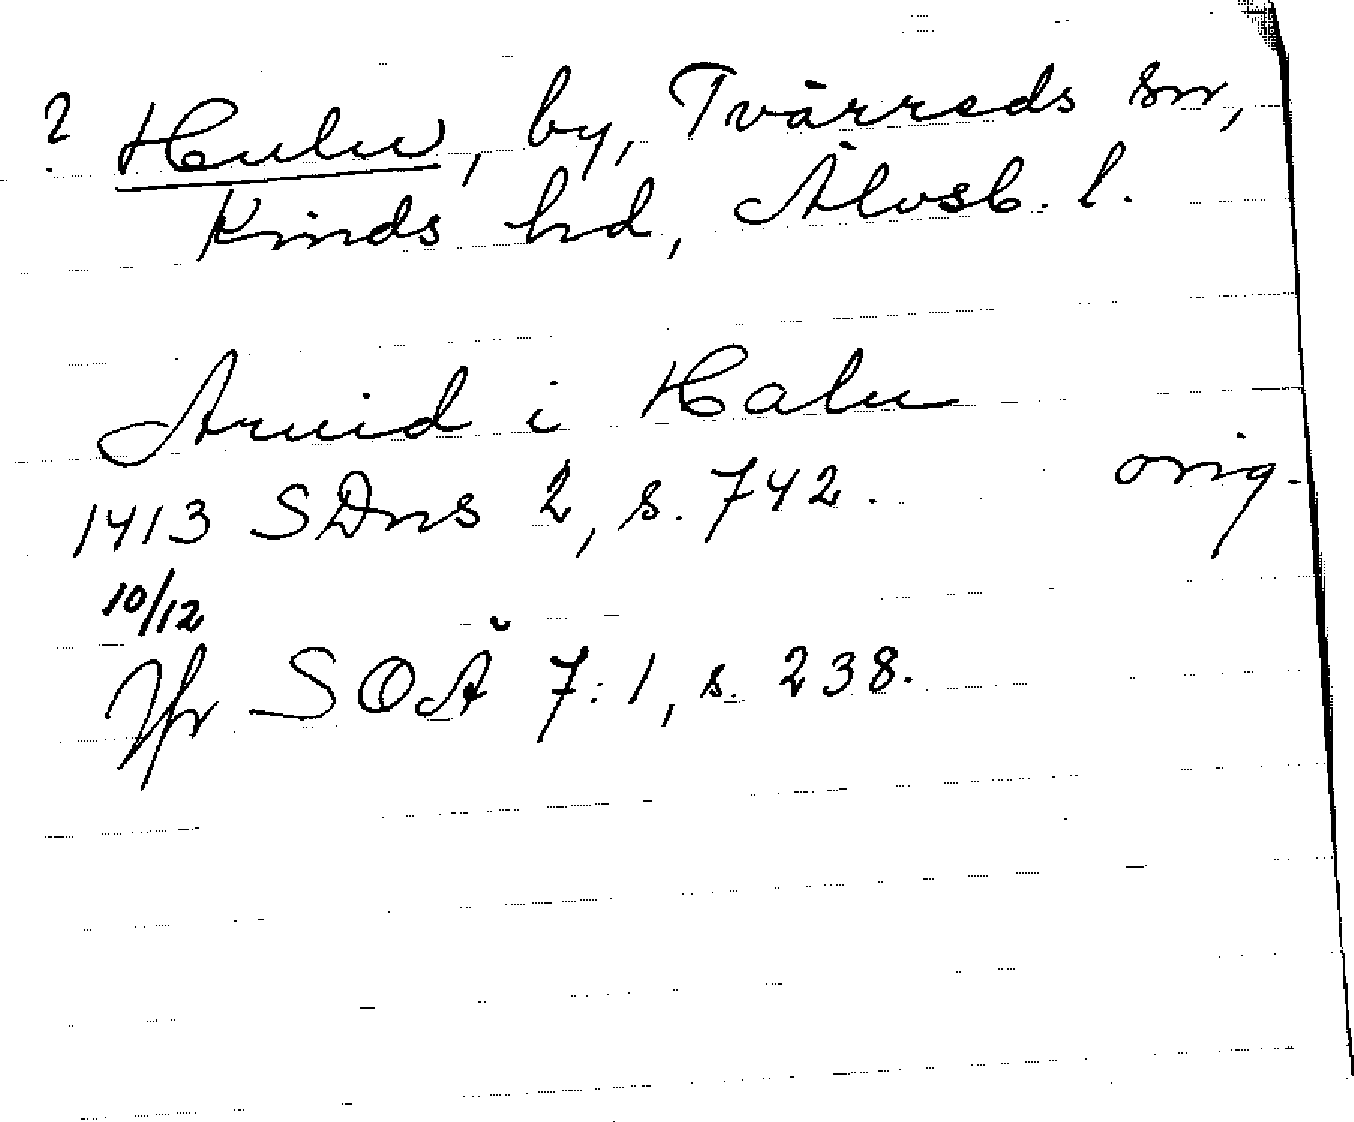 ? Hulu, by, Tvärreds sn,
Kinds hd, Älvsb. l.
Arvid i Halu
1413 SDns 2, s. 742. orig.
10/12
Jfr SOÄ 7:1, s. 238.